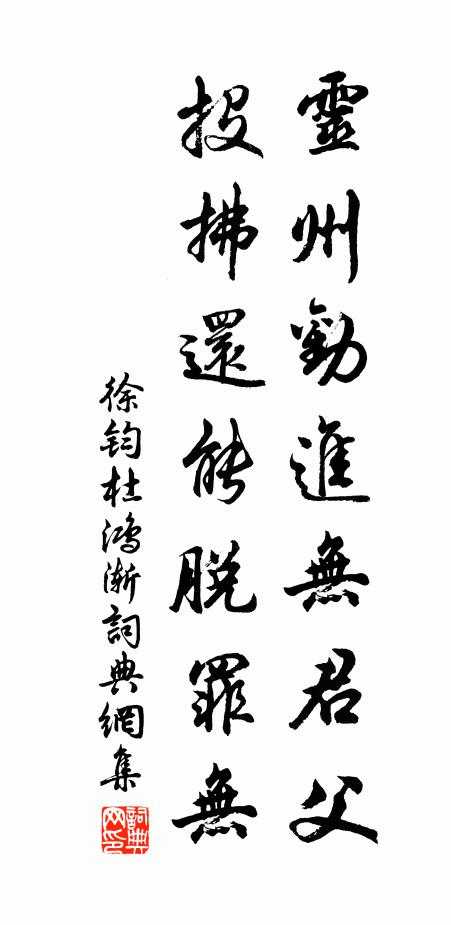 靈州勸進無君父
投拂還能脫罪無
徐鈞杜鴻漸詞典網集
詞典網印